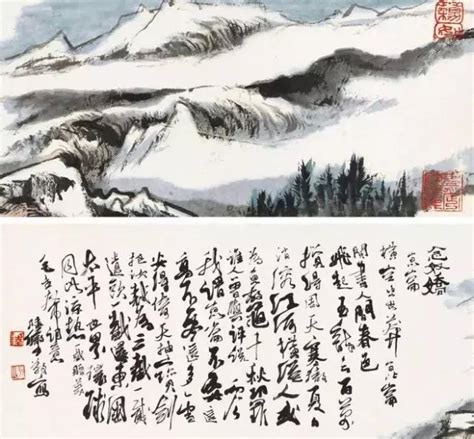 念奴嬌
崑崙
橫空出世莽崑崙
閱盡人間春色
飛起玉龍三百萬
攪得周天寒徹夏日
消溶江河橫溢人或
為魚鱉千秋功罪
誰人曾與評說
我謂崑崙不要這
高不要這多雪
安得倚天抽寶劍
把汝裁為三截一截
遺歐一截還東國
太平世界環球
同此涼熱
毛主席詞意
陸儼少敬寫